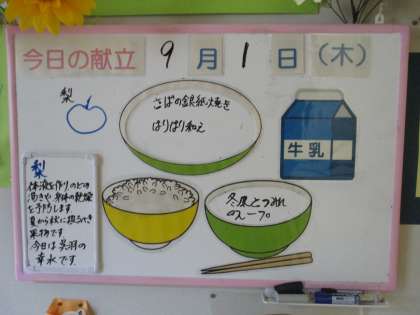 今日の献立 9月1日(木)
梨
さばの銀紙焼き
はりはり和え
牛乳
冬瓜とつみれ
のスープ
梨
体液を作りのどの
渇きや身体の乾燥
を予防します
夏から秋に採るべき
果物です
今日は呉羽の
幸水です